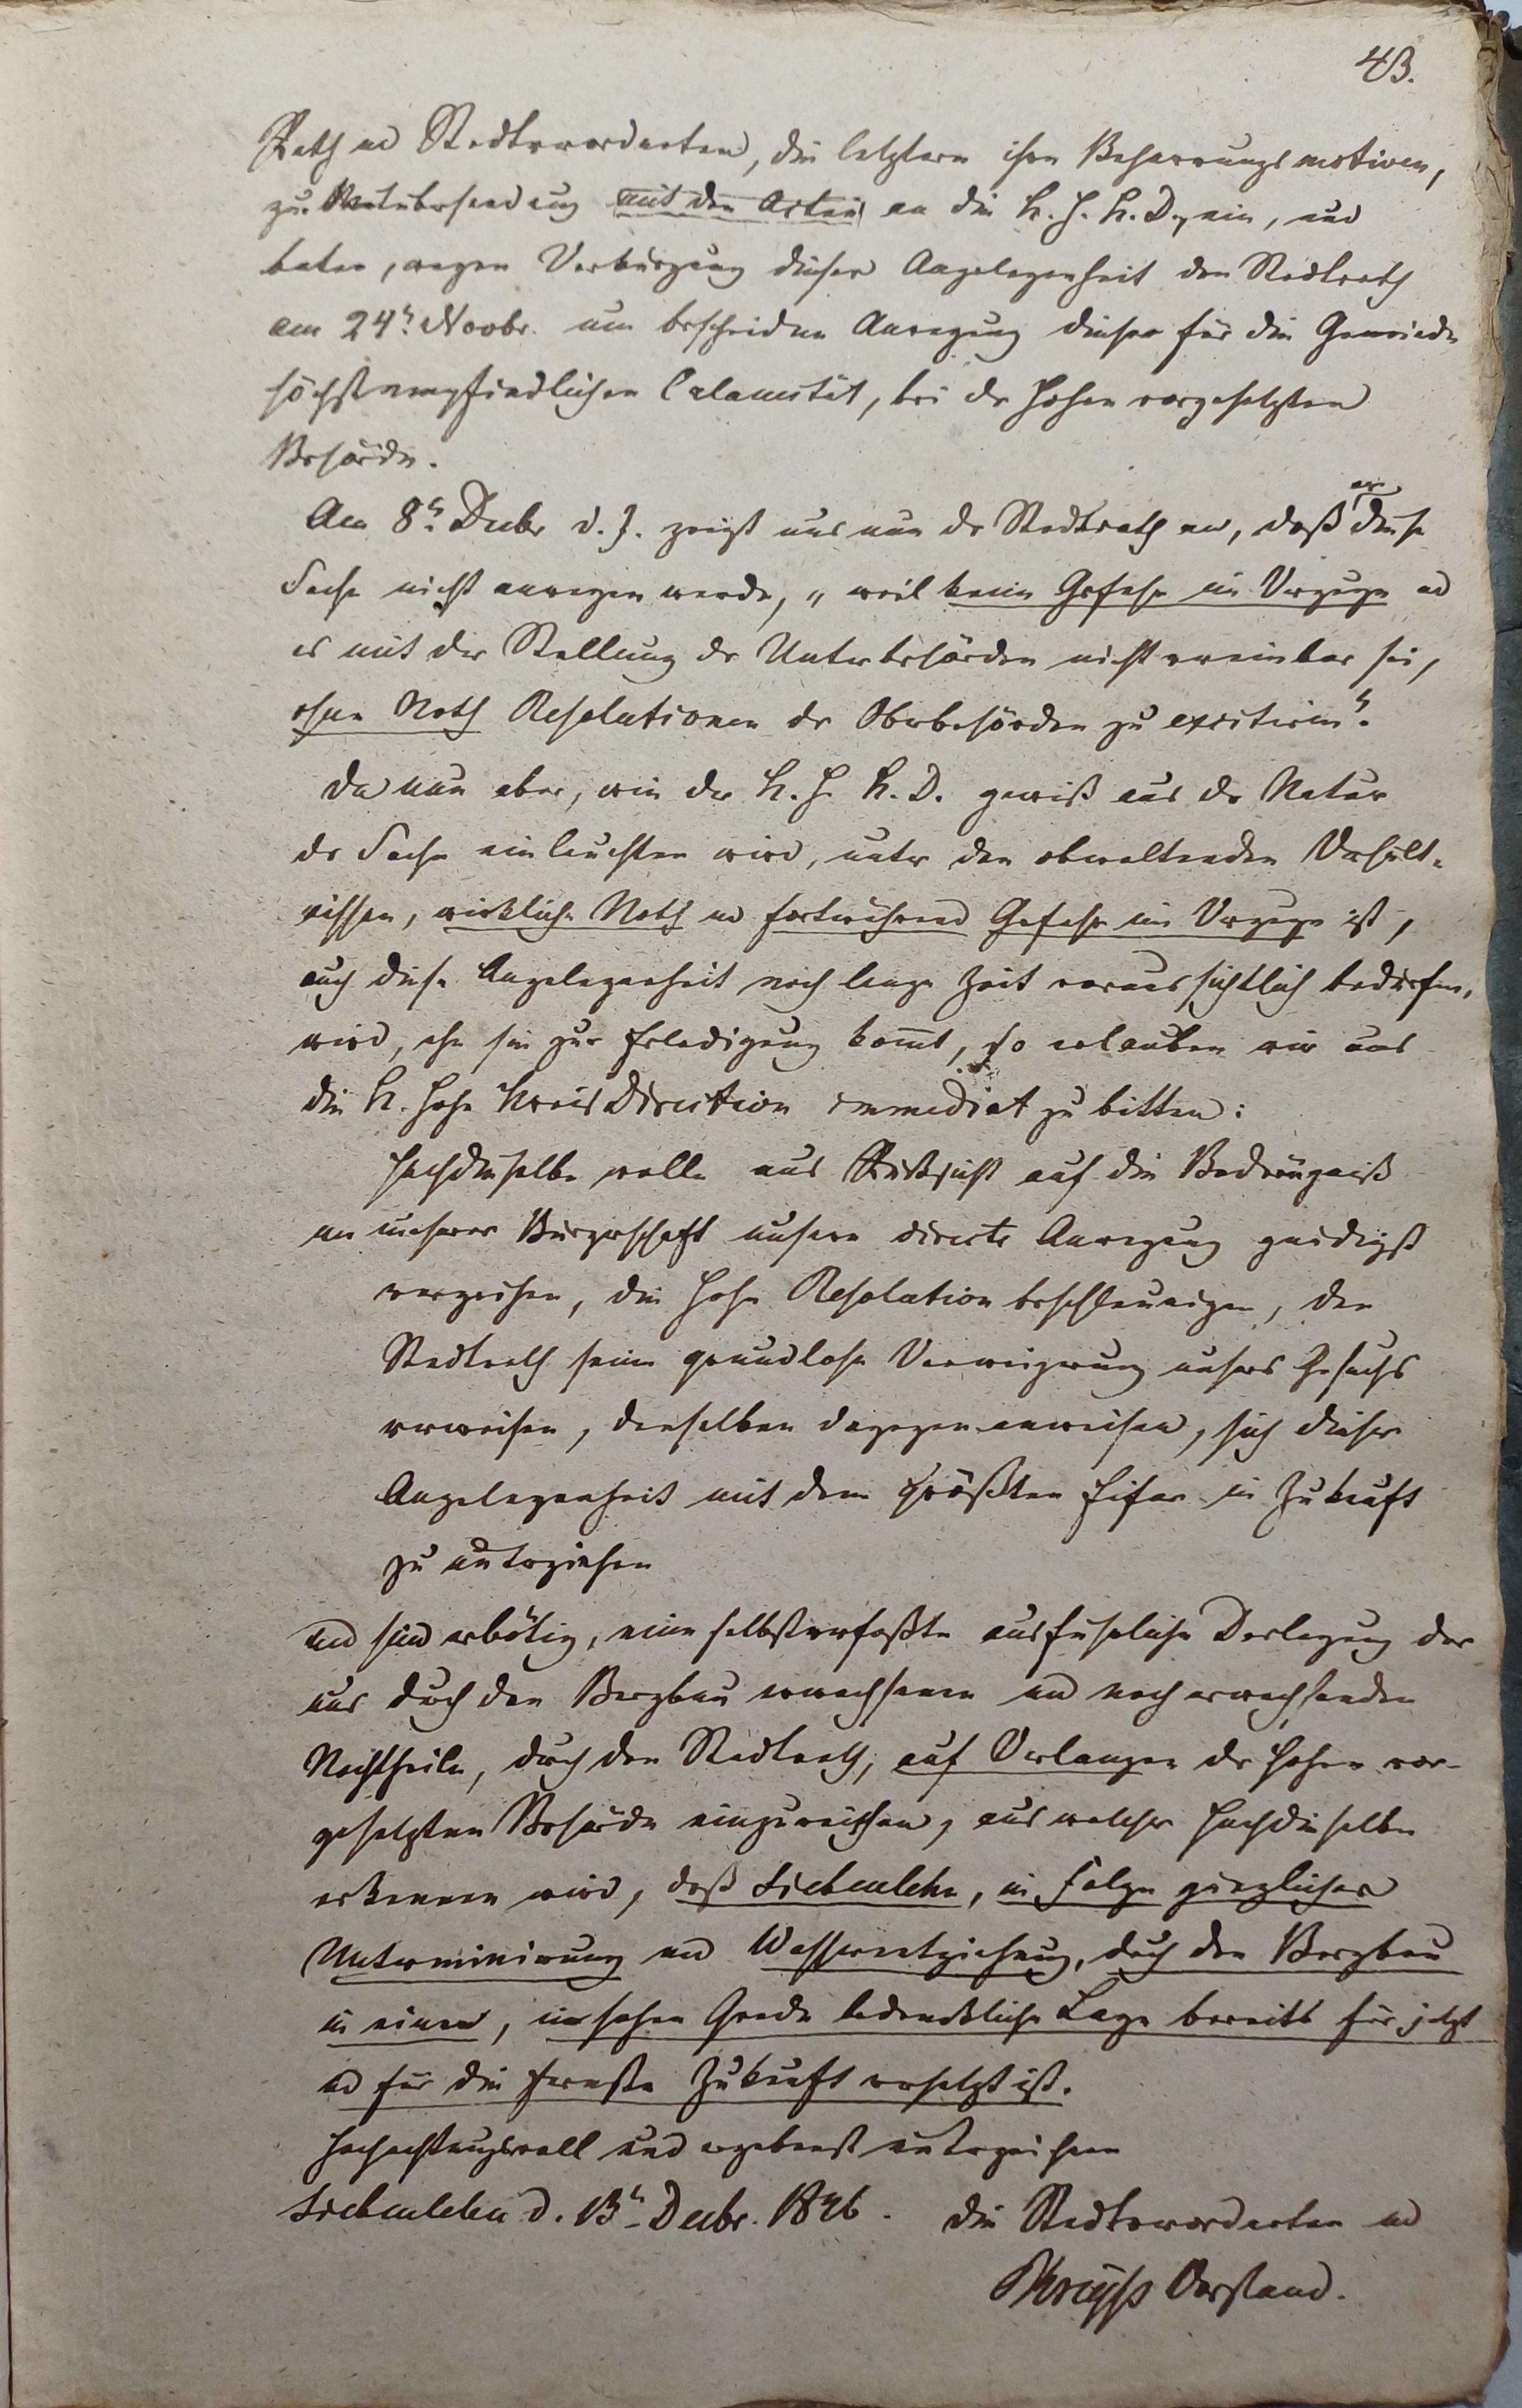 43.
Rath u Stadtverordneten, die letztern ihre Beharrungsmotiven,
zur Mitübersendung mit den Acten an die K. H. K. D., ein, und
baten, wegen Verbürgung dieser Angelegenheit den Stadtrath
am 24n Novbr. um bescheidne Anregung dieser für die Gemeinde
höchstempfindlichen Calamität, bei dr hohen vorgesetzten
Behörde.
Am 8n Decbr d. J. zeigt uns nun dr Stadtrath an, daß er diese
Sache nicht anregen werde, „weil keine Gefahr im Verzuge u
es mit der Stellung dr Unterbehörden nicht vereinbar sei,
ohne Noth Resolutionen dr Oberbehörden zu excitiren“.
Da nun aber, wie der K. H. K. D. gewiß aus dr Natur
dr Sache einleuchten wird, unter den obwaltenden Verhält-
nissen, wirkliche Noth u fortwährend Gefahr im Verzuge ist,
auch diese Angelegenheit noch lange Zeit voraussichtlich bedürfen,
wird, ehe sie zur Erledigung komt, so erlauben wir uns
die K. hohe Kreis Direction immediat zu bitten:
Hochdieselbe wolle aus Rücksicht auf die Bedrängniß
unserer Bürgerschaft unsere directe Anregung gnädigst
verzeihen, die hohe Resolution beschleunigen, den
Stadtrath seine grundlose Verweigerung unsers Gesuchs
verweisen, denselben dagegen anweisen, sich dieser
Angelegenheit mit dem größten Eifer in Zukunft
zu unterziehen
und sind erbötig, eine selbstverfaßte ausführliche Darlegung der
uns durch den Bergbau erwachsenen und noch erwachsenden
Nachtheile, durch den Stadtrath, auf Verlangen dr hohen vor-
gesetzten Behörde einzureichen, aus welcher Hochdieselbe
erkennen wird, daß Siebenlehn, in Folge gänzlicher
Unterminirung und Wasserentziehung, durch den Bergbau
in eine, im hohen Grade bedenkliche Lage bereits für jetzt
u für die fernste Zukunft versetzt ist.
Hochachtungsvoll und ergebenst unterzeichnen
Siebenlehn d. 13n Decbr. 1846. die Stadtverordneten u
Vorstand.